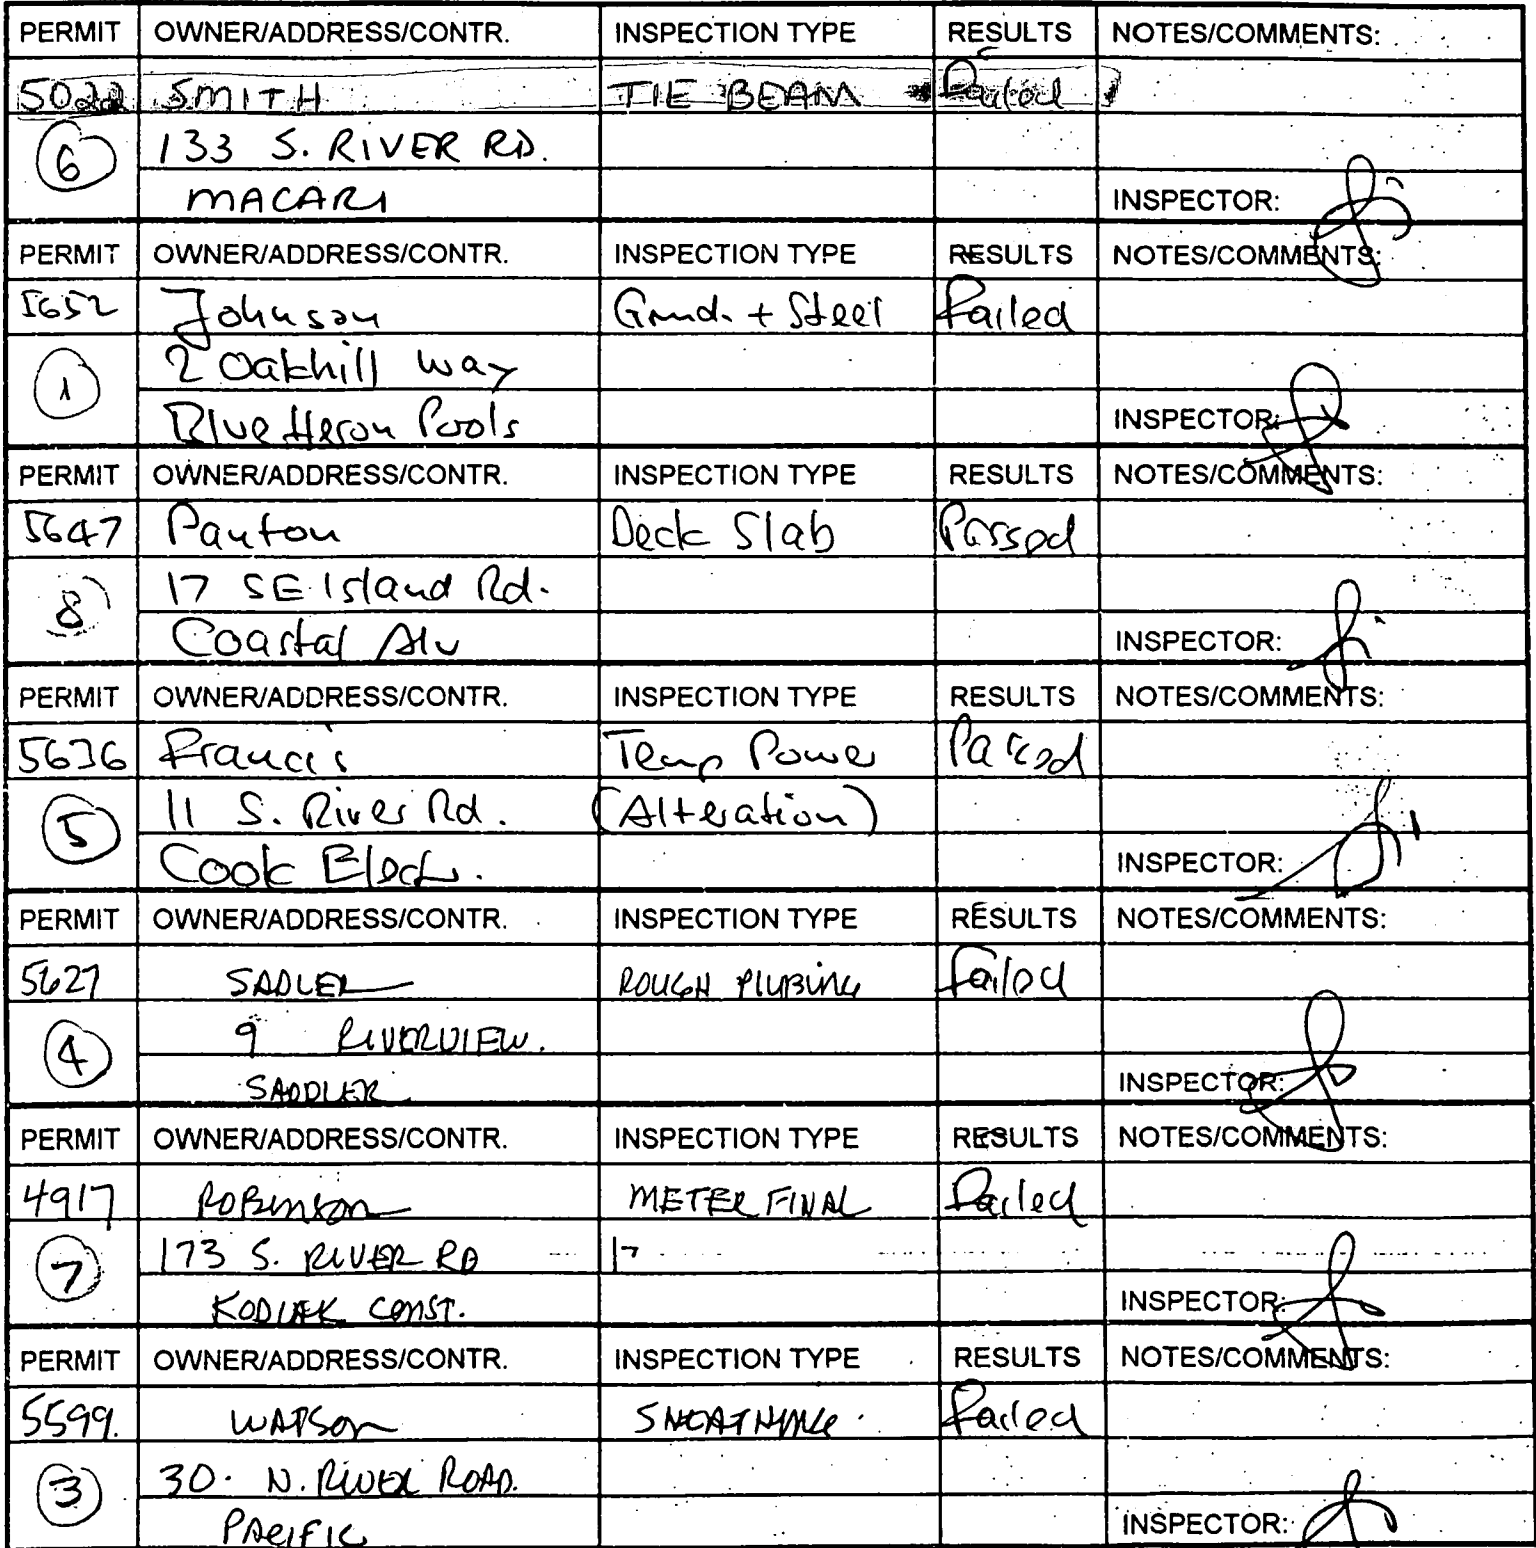 PERMIT OWNER/ADDRESS/CONTR. INSPECTION TYPE RESULTS NOTES/COMMENTS:
5022 SMITH TIE BEAM Failed
6 133 S. RIVER RD.
MACARI INSPECTOR:
PERMIT OWNER/ADDRESS/CONTR. INSPECTION TYPE RESULTS NOTES/COMMENTS:
5652 Johnson Grnd. + Steel Failed
1 2 Oakhill Way
Blue Heron Pools INSPECTOR:
PERMIT OWNER/ADDRESS/CONTR. INSPECTION TYPE RESULTS NOTES/COMMENTS:
5647 Panton Deck Slab Passed
8 17 SE Island Rd.
Coastal Alu INSPECTOR:
PERMIT OWNER/ADDRESS/CONTR. INSPECTION TYPE RESULTS NOTES/COMMENTS:
5636 Francis Temp Power Passed
5 11 S. River Rd. (Alteration)
Cook Elect. INSPECTOR:
PERMIT OWNER/ADDRESS/CONTR. INSPECTION TYPE RESULTS NOTES/COMMENTS:
5627 SADLER ROUGH PLUBING Failed
4 9 RIVERVIEW.
SADDLER INSPECTOR:
PERMIT OWNER/ADDRESS/CONTR. INSPECTION TYPE RESULTS NOTES/COMMENTS:
4917 ROBINSON METER FINAL Failed
7 173 S. RIVER RD
KODIAK CONST. INSPECTOR:
PERMIT OWNER/ADDRESS/CONTR. INSPECTION TYPE RESULTS NOTES/COMMENTS:
5599. WATSON SHEATHING. Failed
3 30. N. RIVER ROAD.
PACIFIC INSPECTOR: